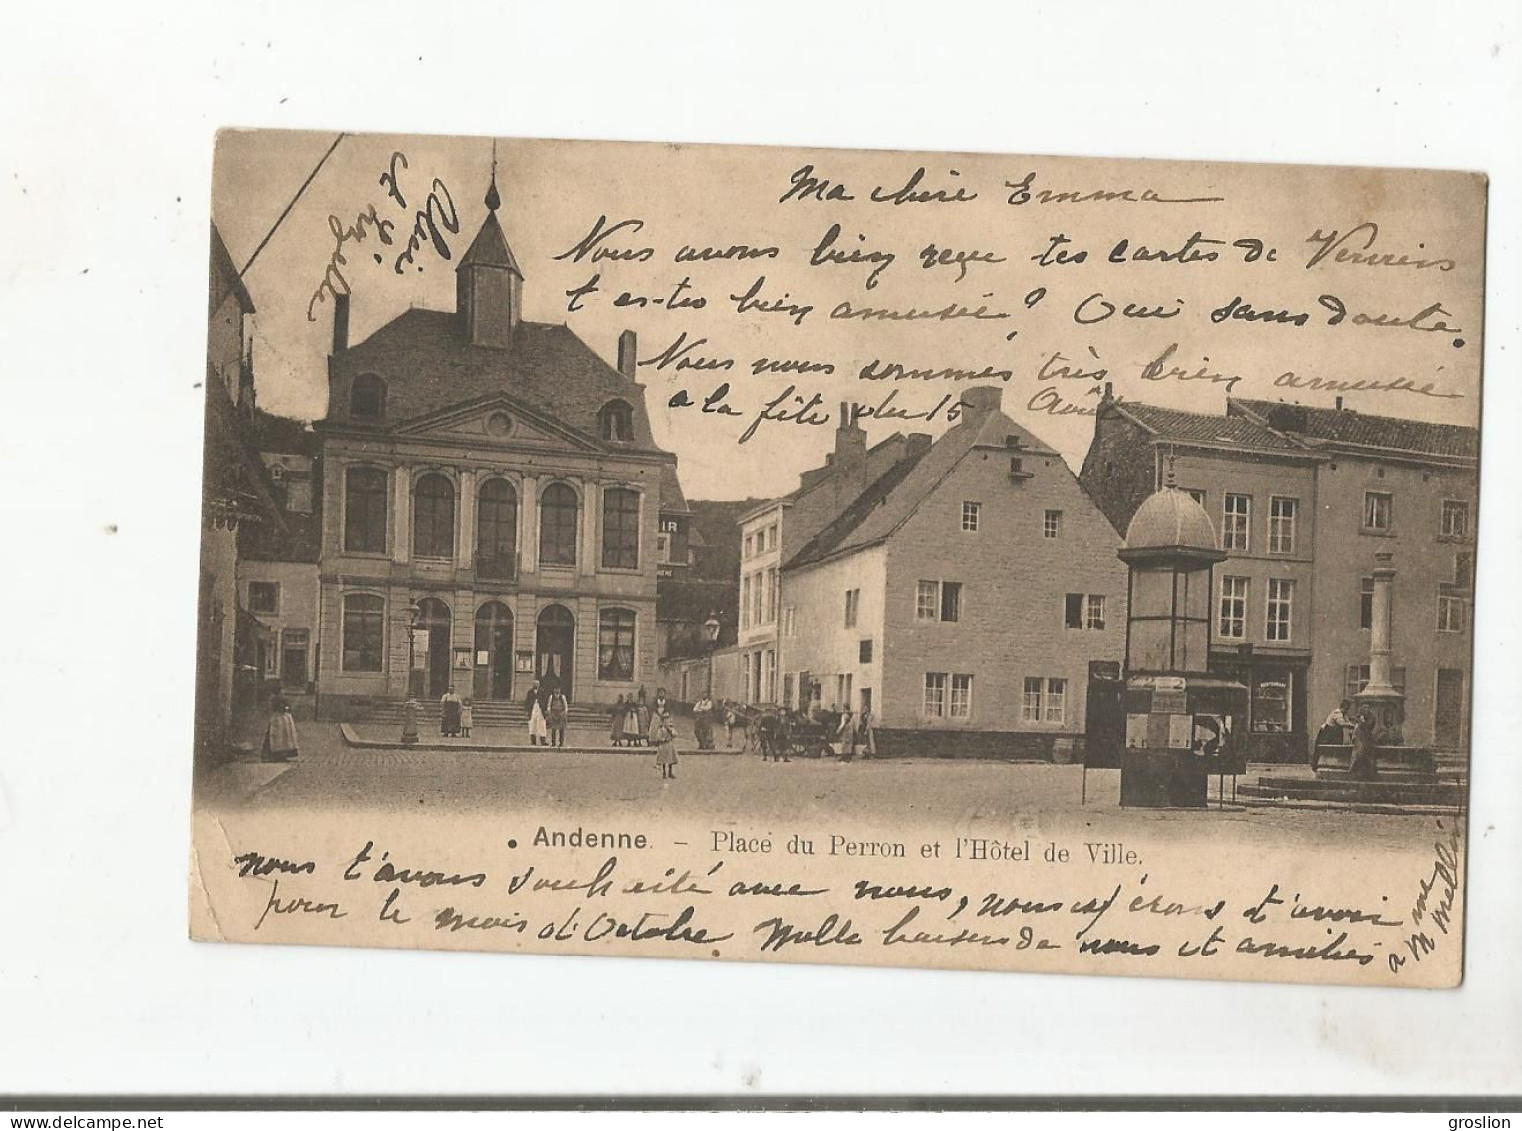 Ma chère Emma
Nous avons bien reçue tes cartes de Verviers
t es-tes bien amusée? Oui sans doute.
Nous nous sommes très bien amusée
a la fête du 15 Août
IR
Andenne. — Place du Perron et l'Hôtel de Ville.
nous t'avons souhaité avec nous, nous espérons t'avoir
pour le mois d'Octobre Mille baisers de nous et amitiés
a Mme
groslion